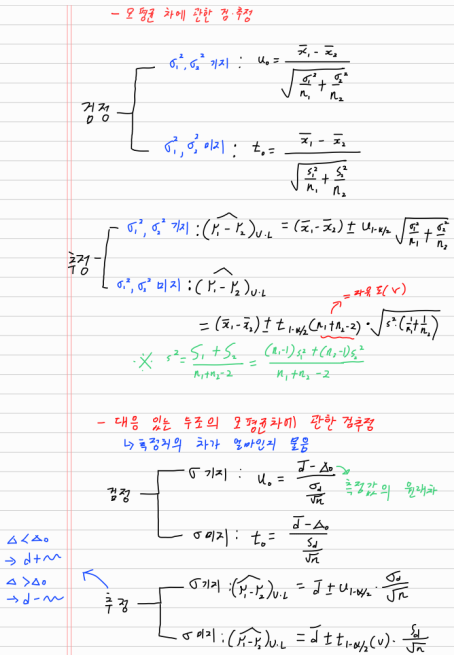 - 모평균 차에 관한 검·추정
검정
σ₁², σ₂² 기지 : u₀ = (x̄₁ - x̄₂) / √(σ₁²/n₁ + σ₂²/n₂)
σ₁², σ₂² 미지 : t₀ = (x̄₁ - x̄₂) / √(s₁²/n₁ + s₂²/n₂)
추정
σ₁², σ₂² 기지 : (μ₁-μ₂)^U·L = (x̄₁-x̄₂) ± u₁₋α/₂ √(σ₁²/n₁ + σ₂²/n₂)
σ₁², σ₂² 미지 : (μ₁-μ₂)^U·L
= 자유도(ν)
= (x̄₁-x̄₂) ± t₁₋α/₂(n₁+n₂-2) · √(s²·(1/n₁+1/n₂))
※ s² = (S₁+S₂)/(n₁+n₂-2) = ((n₁-1)s₁²+(n₂-1)s₂²)/(n₁+n₂-2)
- 대응 있는 두조의 모평균차에 관한 검추정
↳ 측정치의 차가 얼마인지 물음
검정
σ 기지 : u₀ = (d̄-Δ₀)/(σd/√n)
측정값의 원래차
σ 미지 : t₀ = (d̄-Δ₀)/(sd/√n)
Δ<Δ₀
→ d+~~
Δ>Δ₀
→ d-~~
추정
σ 기지 : (μ₁-μ₂)^U·L = d̄ ± u₁₋α/₂ · σd/√n
σ 미지 : (μ₁-μ₂)^U·L = d̄ ± t₁₋α/₂(ν) · sd/√n